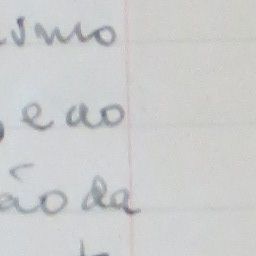 ismo
, e ao
ão da